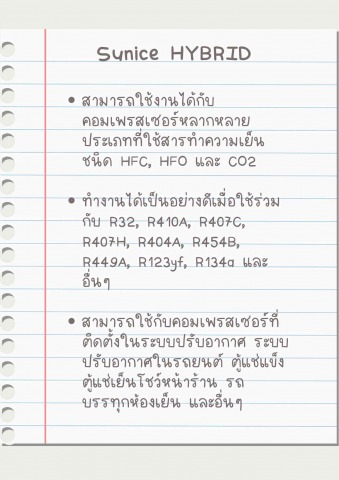 Synice HYBRID
• สามารถใช้งานได้กับ
คอมเพรสเซอร์หลากหลาย
ประเภทที่ใช้สารทำความเย็น
ชนิด HFC, HFO และ CO2
• ทำงานได้เป็นอย่างดีเมื่อใช้ร่วม
กับ R32, R410A, R407C,
R407H, R404A, R454B,
R449A, R123yf, R134a และ
อื่นๆ
• สามารถใช้กับคอมเพรสเซอร์ที่
ติดตั้งในระบบปรับอากาศ ระบบ
ปรับอากาศในรถยนต์ ตู้แช่แข็ง
ตู้แช่เย็นโชว์หน้าร้าน รถ
บรรทุกห้องเย็น และอื่นๆ